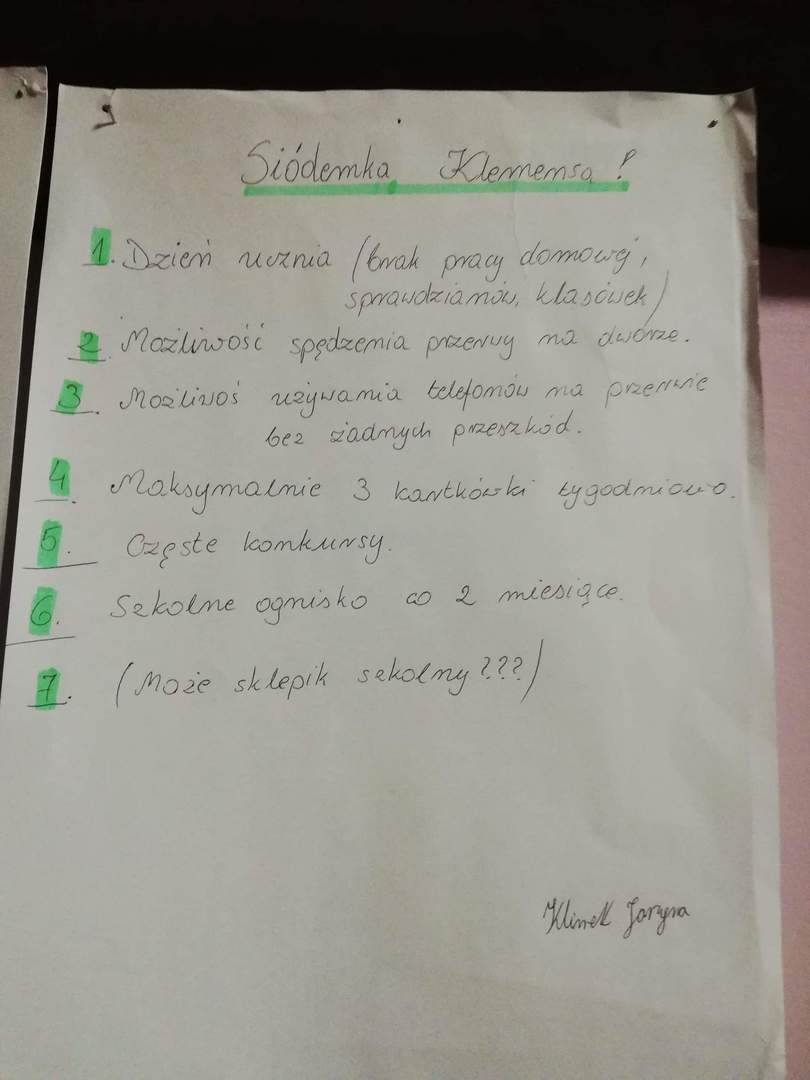 Siódemka Klemensa!
1. Dzień ucznia (brak pracy domowej,
sprawdzianów, klasówek)
2. Możliwość spędzenia przerwy na dworze.
3. Możliwoś używania telefonów na przerwie
bez żadnych przeszkód.
4. Maksymalnie 3 kartkówki tygodniowo.
5. Częste konkursy.
6. Szkolne ognisko co 2 miesiące.
7. (Może sklepik szkolny???)
Klimek Jaryna